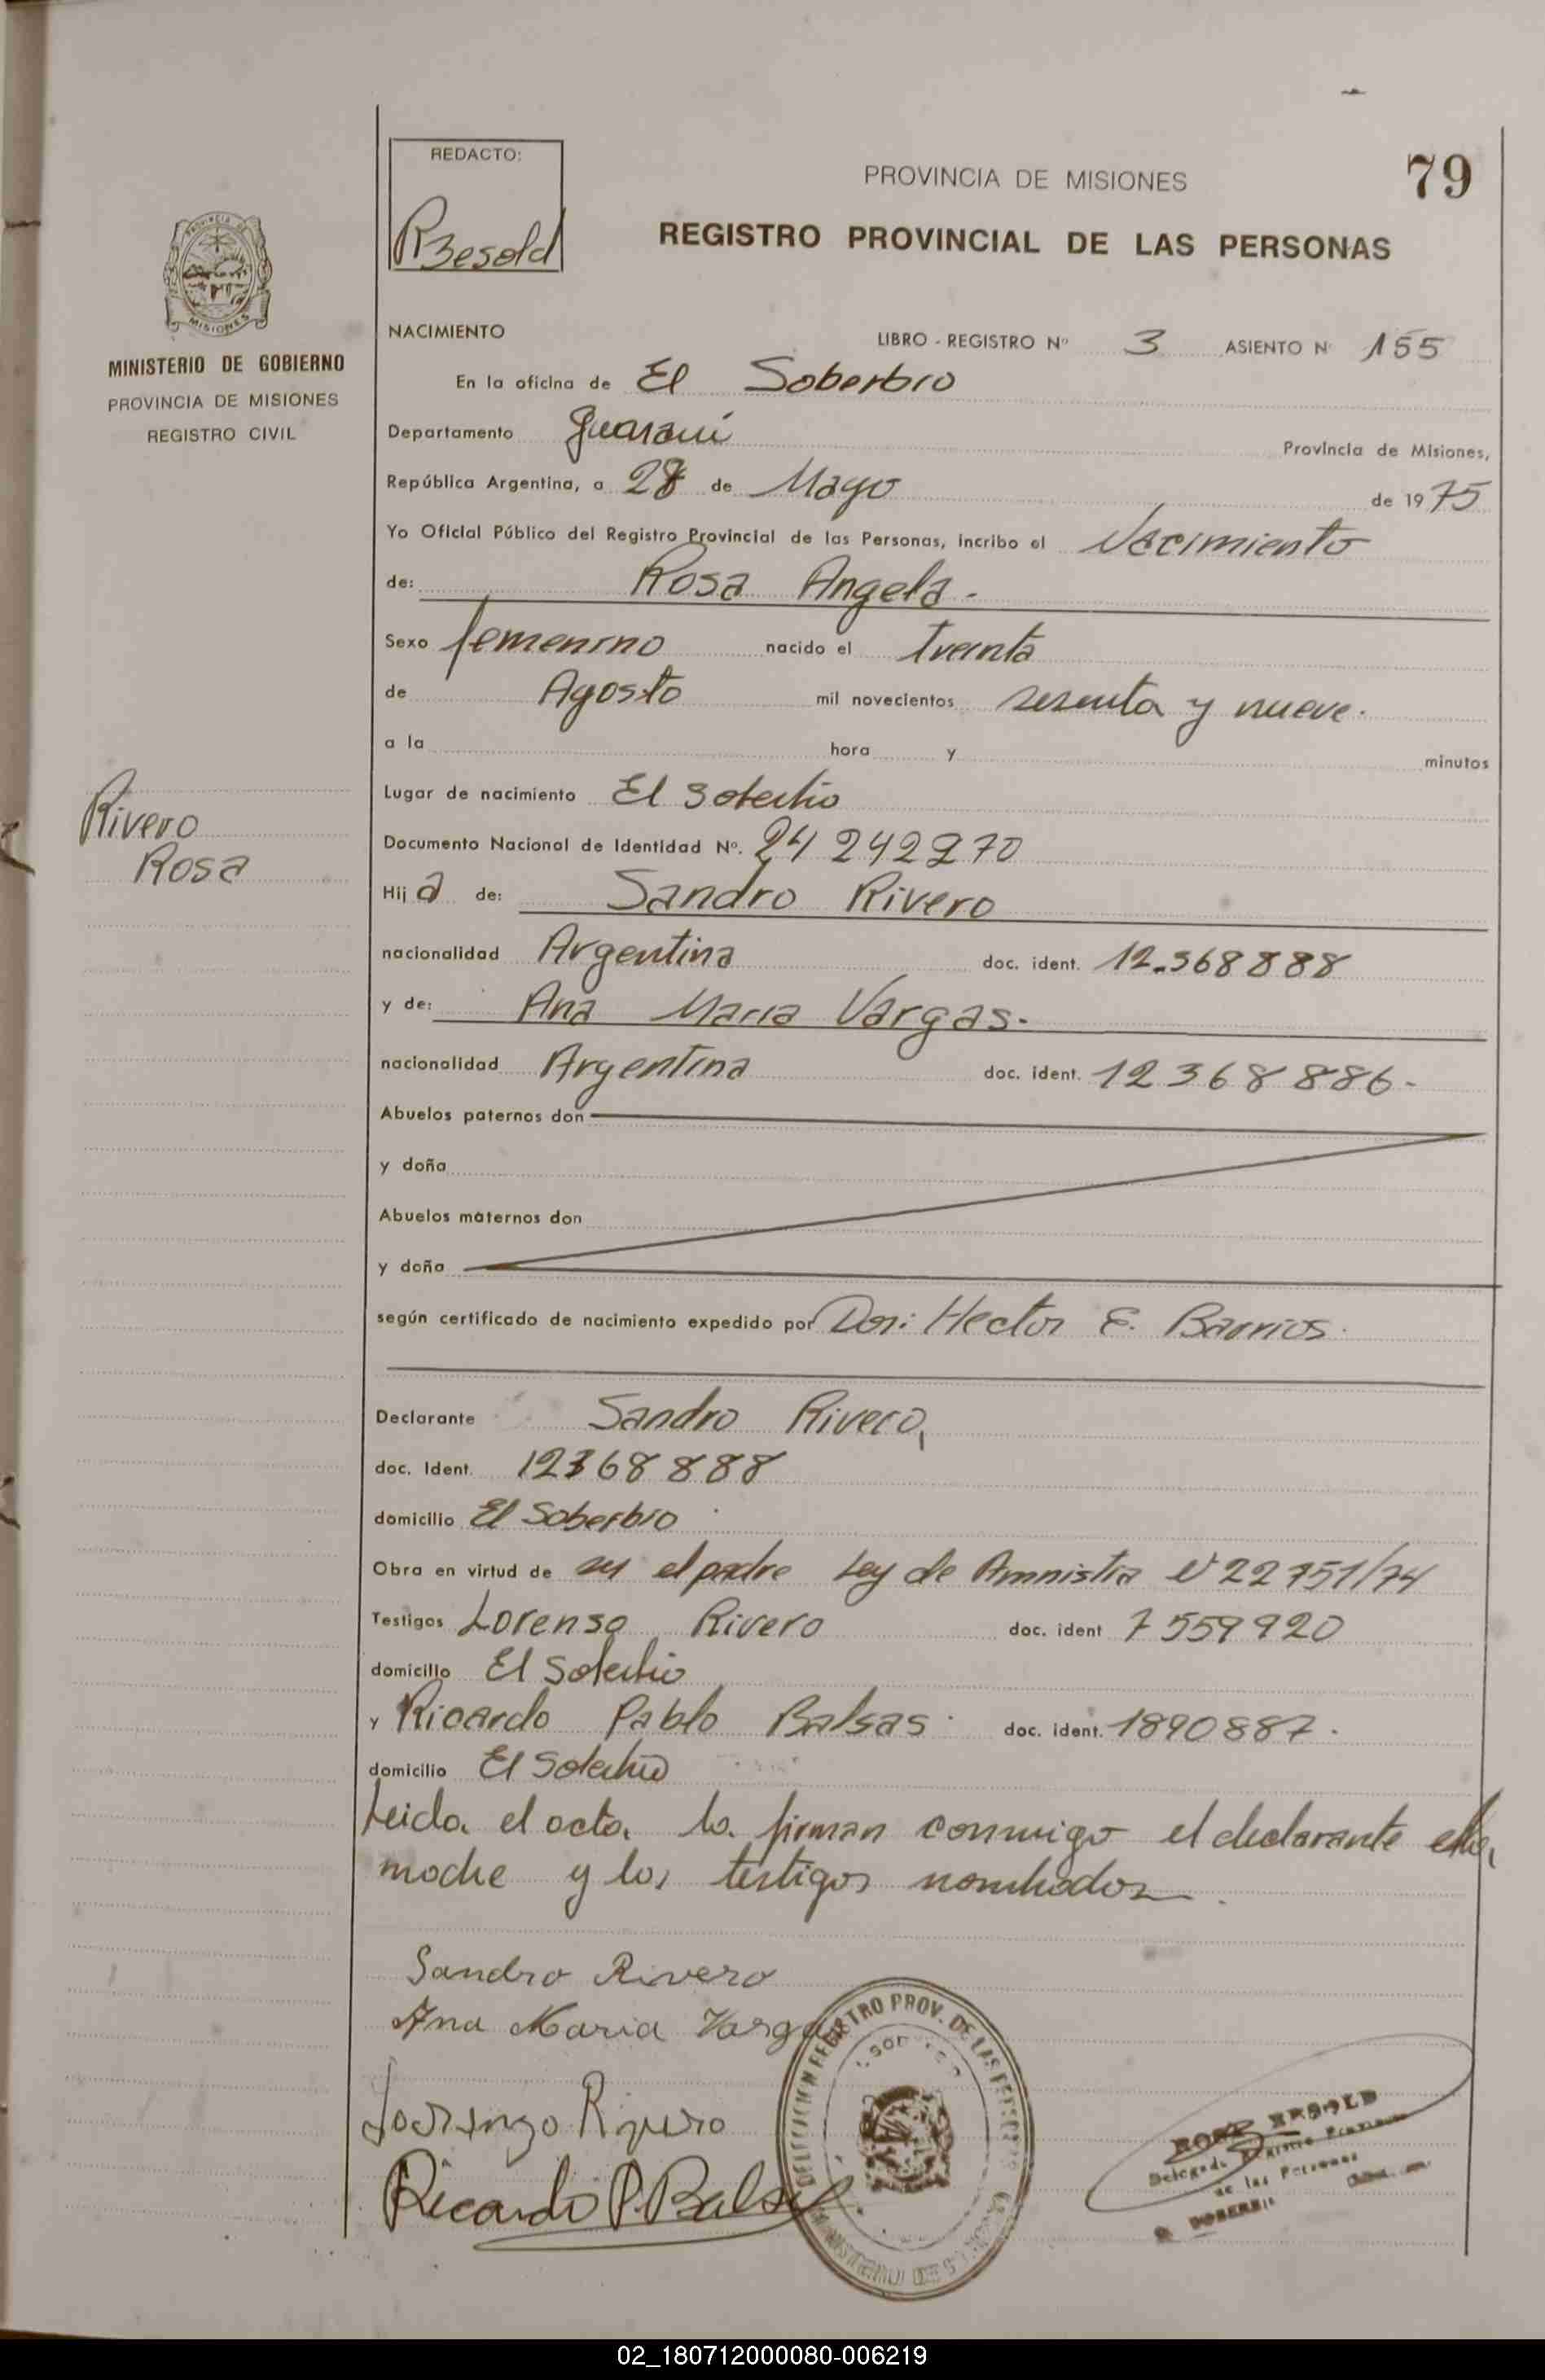 REDACTO:
RBesold
PROVINCIA DE MISIONES
79
REGISTRO PROVINCIAL DE LAS PERSONAS
PROVINCIA DE
MISIONES
MINISTERIO DE GOBIERNO
PROVINCIA DE MISIONES
REGISTRO CIVIL
NACIMIENTO
LIBRO - REGISTRO Nº 3 ASIENTO Nº 155
En la oficina de El Soberbio
Departamento Guaraní Provincia de Misiones,
República Argentina, a 28 de Mayo de 1975
Yo Oficial Público del Registro Provincial de las Personas, incribo el Nacimiento
de: Rosa Angela.
Sexo femenino nacido el Treinta
de Agosto mil novecientos sesenta y nueve.
a la hora y minutos
Lugar de nacimiento El Soberbio
Rivero
Rosa
Documento Nacional de Identidad Nº. 24 242 270
Hija de: Sandro Rivero
nacionalidad Argentina doc. ident. 12.368888
y de: Ana Maria Vargas.
nacionalidad Argentina doc. ident. 12368886.
Abuelos paternos don
y doña
Abuelos maternos don
y doña
según certificado de nacimiento expedido por Don: Hector E. Barrios.
Declarante Sandro Rivero,
doc. Ident. 12368888
domicilio El Soberbio
Obra en virtud de ser el padre Ley de Amnistia Nº 22751/74
Testigos Lorenso Rivero doc. ident 7559920
domicilio El Soberbio
y Ricardo Pablo Balsas. doc. ident. 1890887.
domicilio El Soberbio
Leida el acta, la firman conmigo el declarante ella,
madre y los testigos nombrados.
Sandro Rivero
Ana Maria Vargas
Lorenzo Rivero
Ricardo P. Balsas
REGISTRO PROV. DE LAS PERSONAS
BESOLD
Delegada Registro Provincial
de las Personas
SOBERBIO
02_180712000080-006219